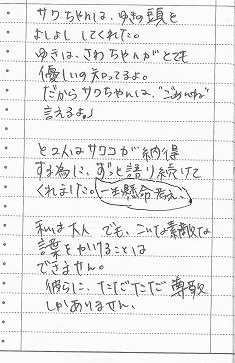 サワちゃんは、ゆきの頭を
よしよし してくれた。
ゆきは、さわちゃんが とても
優しいの 知ってるよ。
だから サワちゃんは、"ごめんね"
言えるよ。」
と 2人は サワコが 納得
する為に、ずっと 語り続けて
くれました。(一生懸命考え、)
私は大人 でも、こんな素敵な
言葉を かけることは
できません。
彼らに、ただただ 尊敬
しかありません。